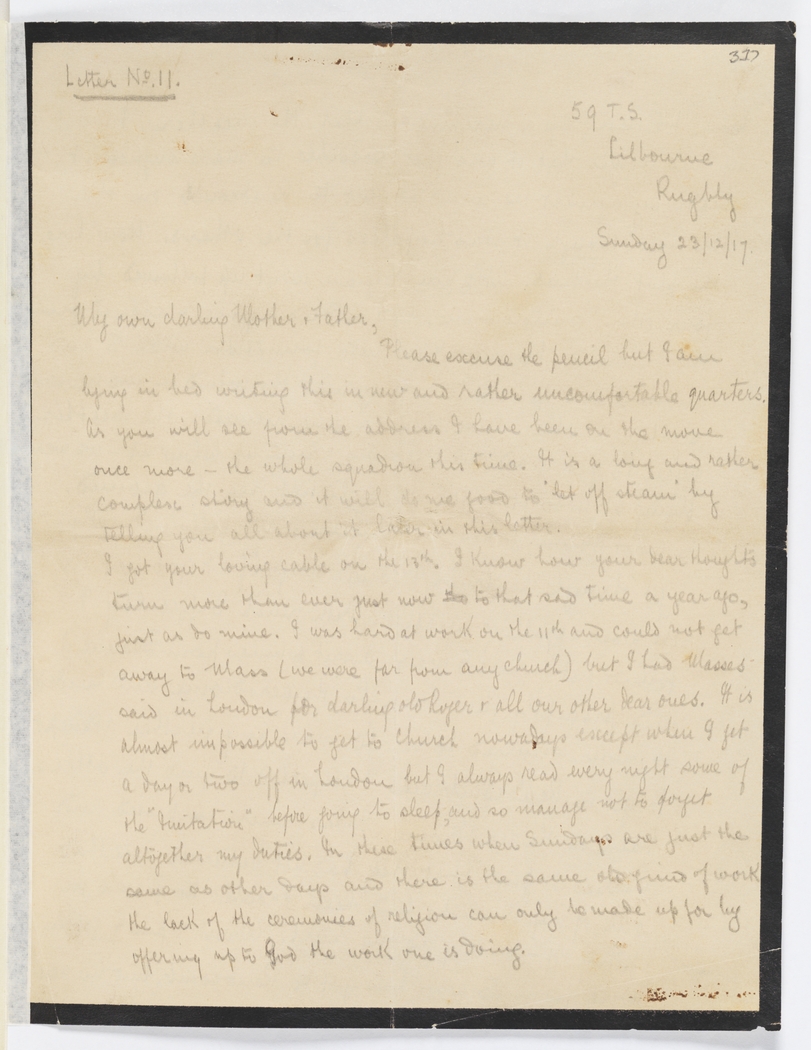 337
Letter No. 11.
59 T.S.
Lilbourne
Rugby
Sunday 23/12/17.
My own darling Mother & Father,
Please excuse the pencil but I am
lying in bed writing this in new and rather uncomfortable quarters.
As you will see from the address I have been on the move
once more – the whole squadron this time. It is a long and rather
complex story and it will do me good to "let off steam" by
telling you all about it later in this letter.
I got your loving cable on the 13th. I know how your dear thoughts
turn more than ever just now to that sad time a year ago,
just as do mine. I was hard at work on the 11th and could not get
away to Mass (we were far from any church) but I had Masses
said in London for darling old Roger & all our other dear ones. It is
almost impossible to get to Church nowadays except when I get
a day or two off in London but I always read every night some of
the "Imitation" before going to sleep, and so manage not to forget
altogether my duties. In these times when Sundays are just the
same as other days and there is the same old grind of work
the lack of the ceremonies of religion can only be made up for by
offering up to God the work one is doing.